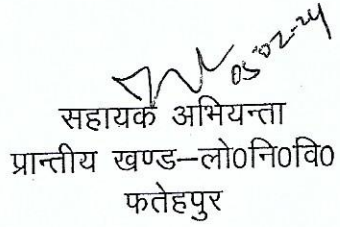 05-02-24
सहायक अभियन्ता
प्रान्तीय खण्ड–लो0नि0वि0
फतेहपुर